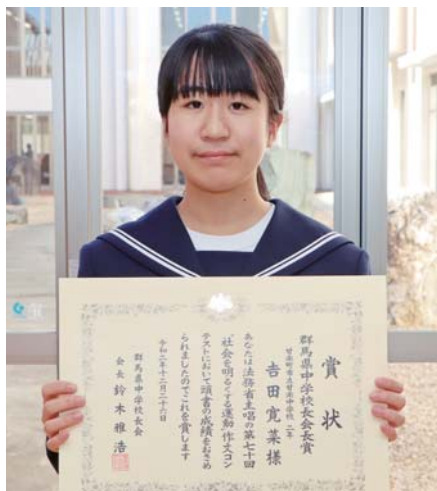 賞状
群馬県中学校長会長賞
甘楽町立甘楽中学校 二年
吉田寛菜様
あなたは法務省主唱の第七十回
“社会を明るくする運動”作文コン
テストにおいて頭書の成績をおさめ
られましたのでこれを賞します
令和二年十二月二十六日
群馬県中学校長会
会長 鈴木雅浩